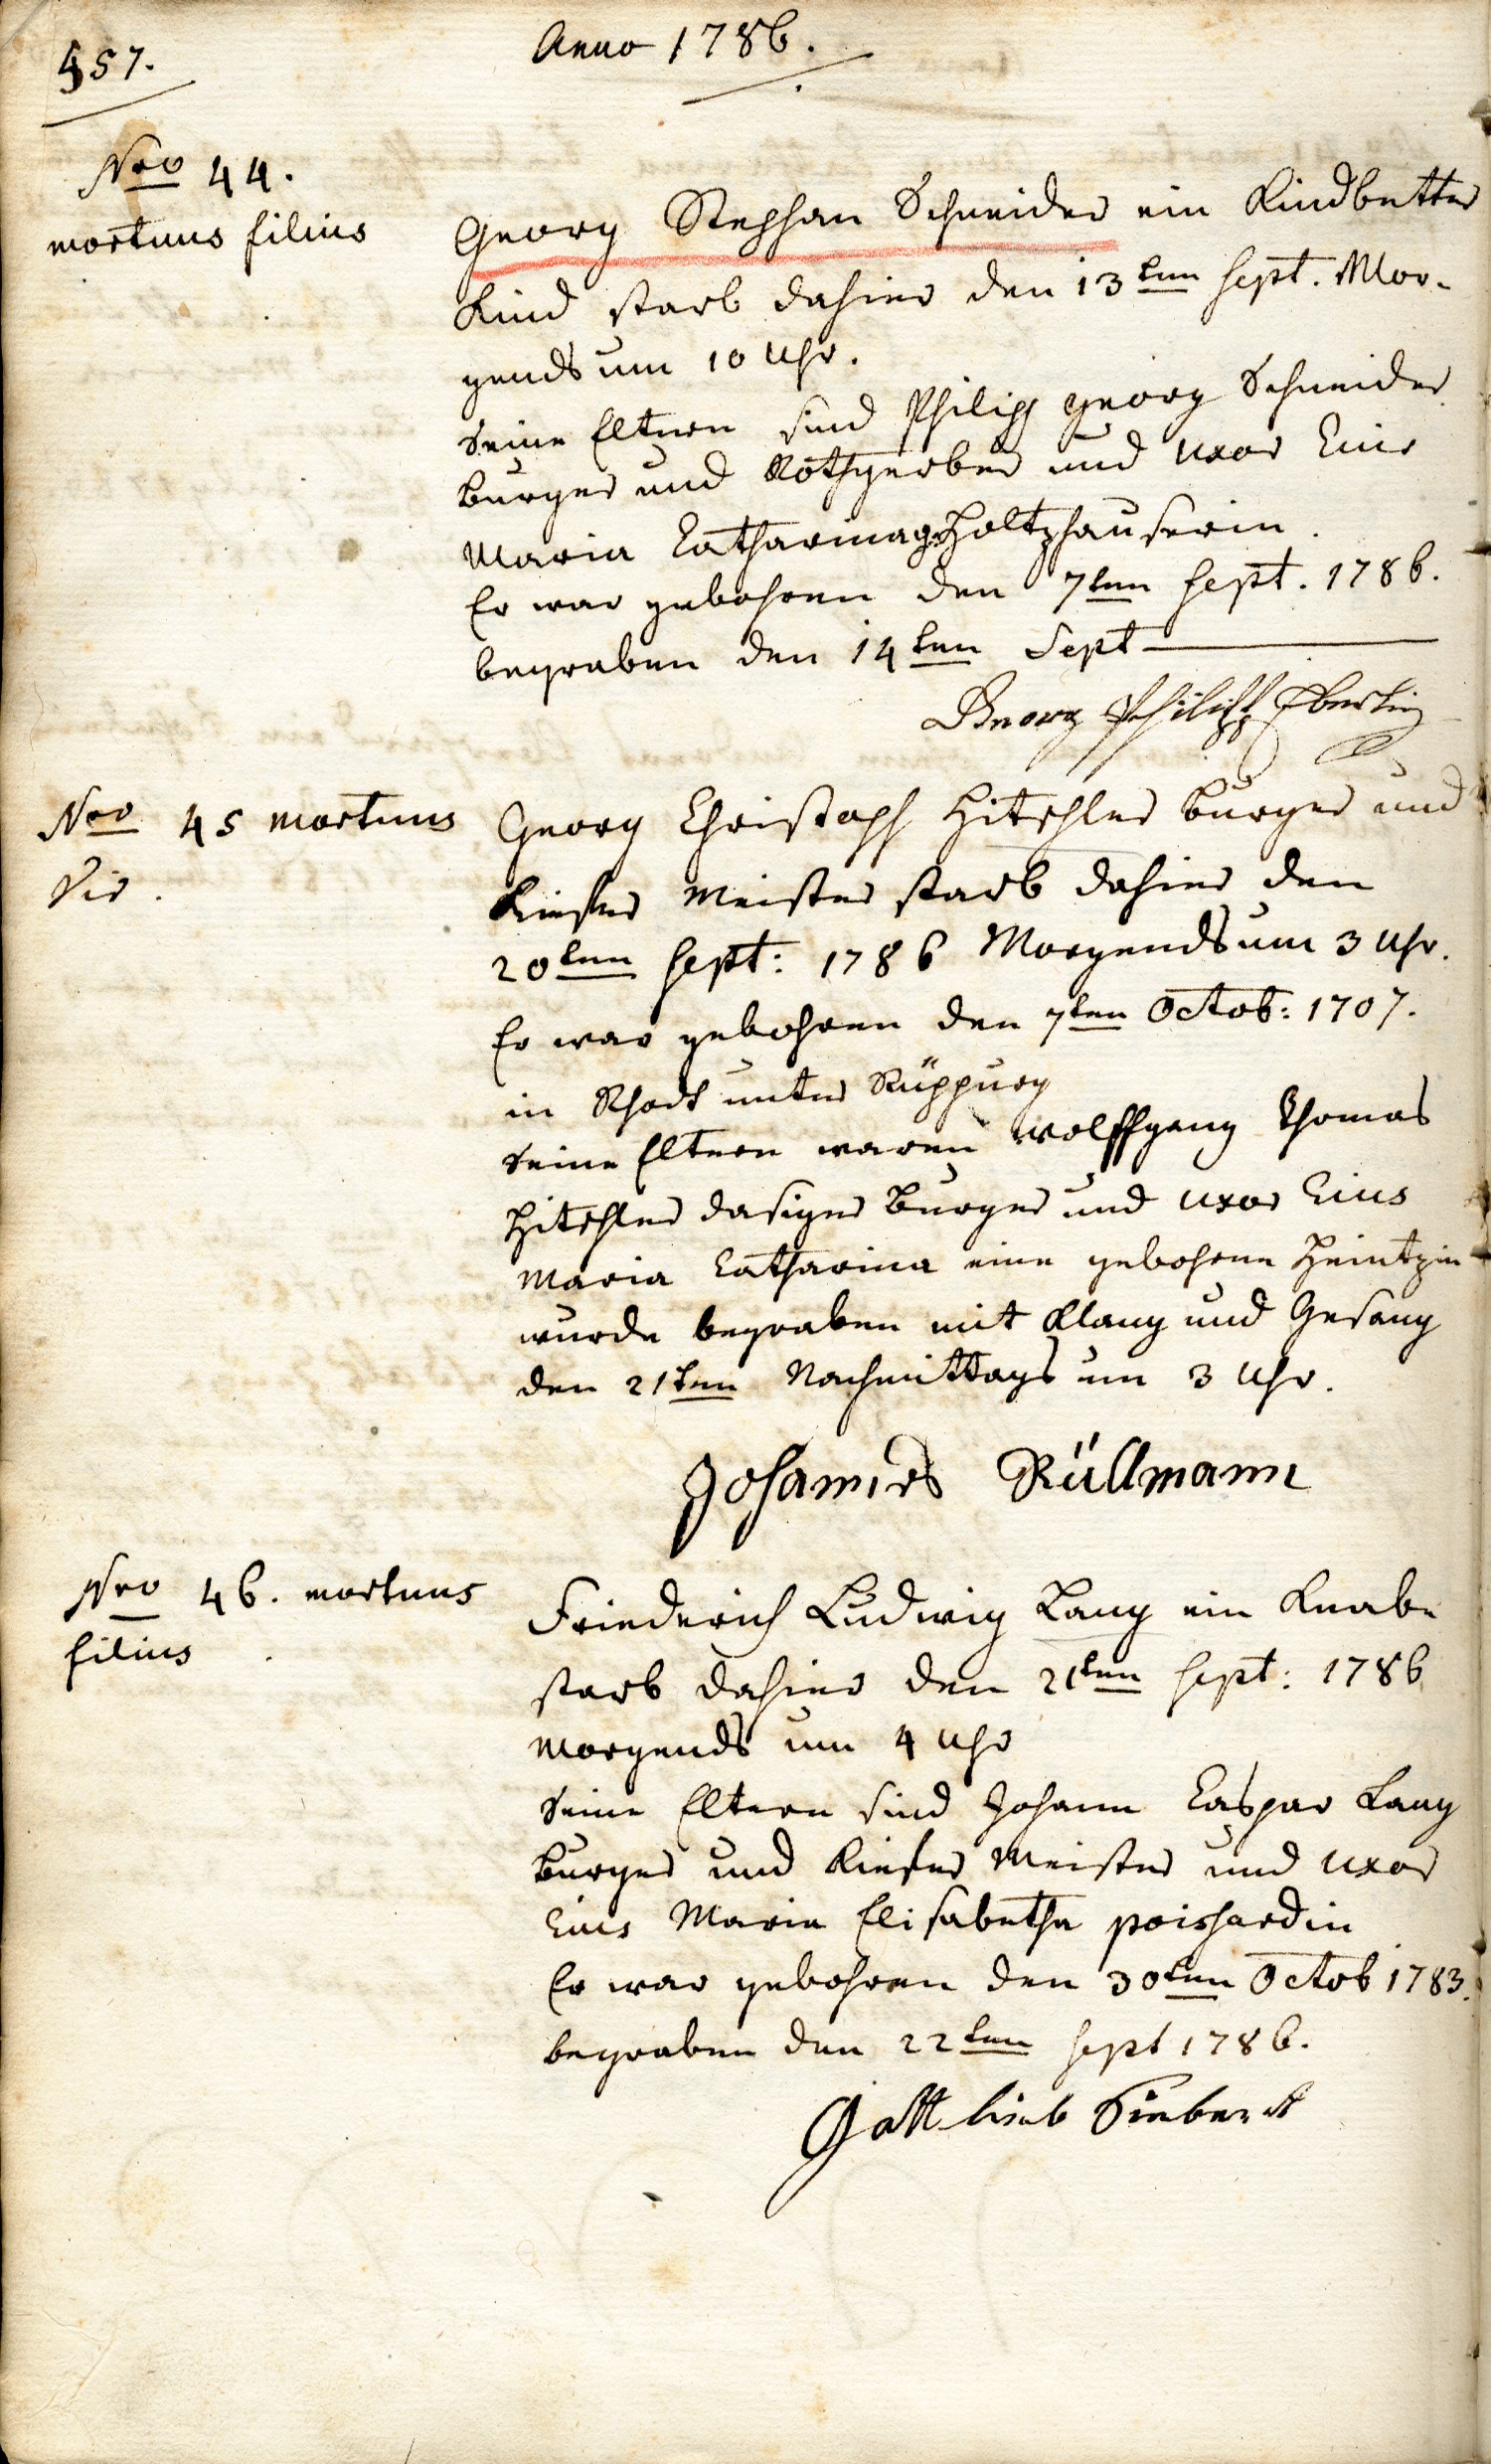 457.
Anno 1786.
Nro 44.
mortuus filius
Georg Stephan Schneider ein Kindbetter
Kind starb dahier den 13ten Sept. Mor-
gends um 10 Uhr.
Seine Eltern sind Philipp Georg Schneider
Burger und Rothgerber und uxor Eius
Maria Catharina g. Holtzhauserin.
Er war gebohren den 7ten Sept. 1786.
begraben den 14ten Sept
Georg Philipp Eberlin
Nro 45 mortuus
Vir.
Georg Christoph Hitschler Burger und
Kiefer Meister starb dahier den
20ten Sept: 1786 Morgends um 3 Uhr.
Er war gebohren den 7ten Octob: 1707.
in Rhodt unter Rüppurg
Seine Eltern waren Wolffgang Thomas
Hitschler dasiger Burger und uxor Eius
Maria Catharina eine gebohrne Heintzin
wurde begraben mit Klang und Gesang
den 21ten Nachmittags um 3 Uhr.
Johannes Rüllmann
Nro 46. mortuus
filius
Friederich Ludwig Lang ein Knabe
starb dahier den 21ten Sept: 1786
Morgends um 4 Uhr
Seine Eltern sind Johann Caspar Lang
Burger und Kiefer Meister und uxor
Eius Maria Elisabetha poishardin
Er war gebohren den 30ten Octob 1783.
begraben den 22ten Sept 1786.
Gottlieb Sieber